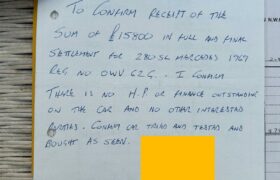 TO CONFIRM RECEIPT OF THE
SUM OF £15800 IN FULL AND FINAL
SETTLEMENT FOR 280SL MERCEDES 1969
REG NO OWN 62G. I CONFIRM
THERE IS NO H.P OR FINANCE OUTSTANDING
ON THE CAR AND NO OTHER INTERESTED
PARTIES. CONFIRM CAR TRIED AND TESTED AND
BOUGHT AS SEEN.